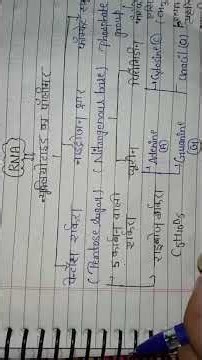 RNA
न्यूक्लियोटाइड का पॉलीमर
पेन्टोस शर्करा
(Pentose sugar)
5 कार्बन वाली
शर्करा
राइबोज शर्करा
C5H10O5
नाइट्रोजन क्षार
(Nitrogenous base)
प्यूरीन
Adenine
(A)
Guanine
(G)
पिरीमिडीन
Cytosine (C)
Uracil (U)
(phosphate
group)